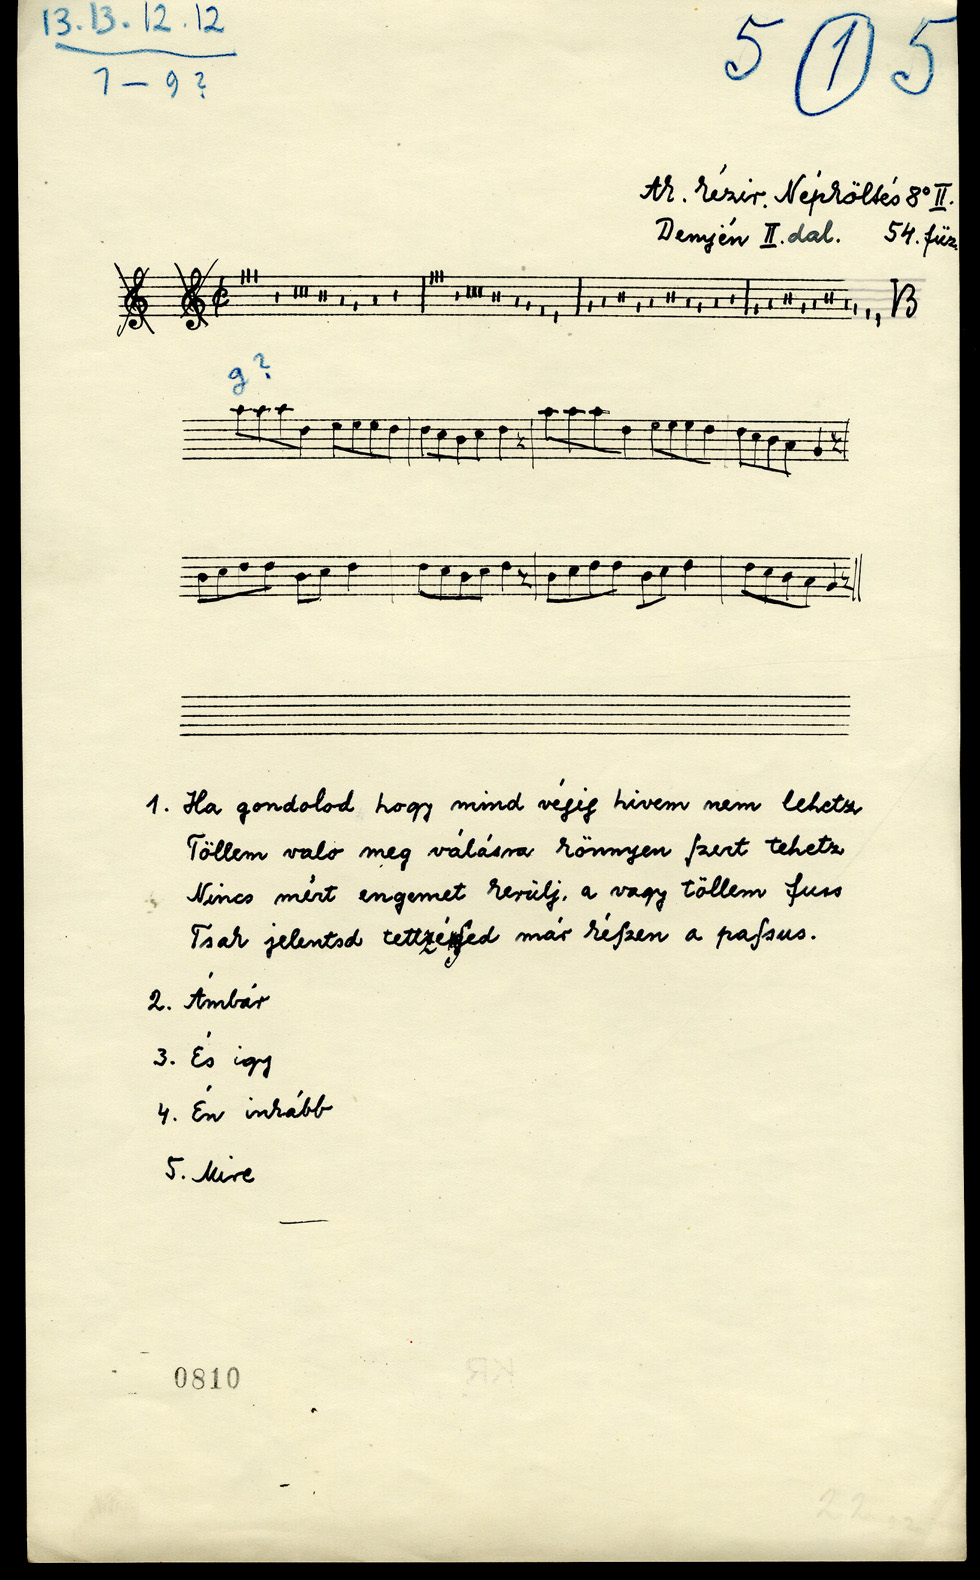 13.13.12.12
1 – 9?
5 1 5
Ak. kézir. Népköltés 8° II.
Demjén II. dal. 54. füz.
g?
1. Ha gondolod hogy mind végig hivem nem lehetz
Töllem valo meg válásra könnyen ſzert tehetz
Nincs mért engemet kerülj, a vagy töllem fuss
Tsak jelentsd már kéſzen a paſsus.
2. Ámbár
3. És igy
4. Én inkább
5. Mire
0810